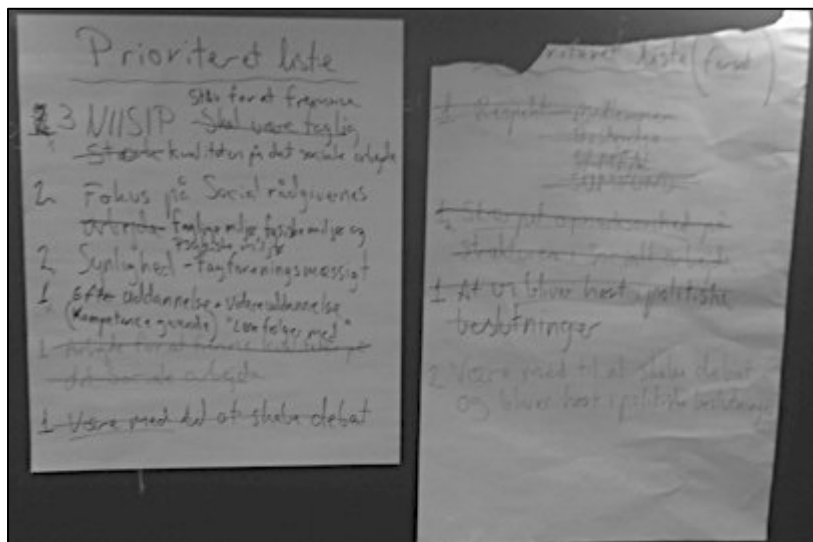 Prioriteret liste
Står for at fremvise
3 NIISIP Skal være faglig
Stærke kvaliteten på det sociale arbejde
2 Fokus på Socialrådgivernes
arbejde faglige miljø, fysiske miljø og
Psykiske miljø
2 Synlighed - fagforeningsmæssigt
1 Efter uddannelse + videreuddannelse
(Kompetence givende) "Løn følger med"
1 Arbejde for at kvaliteten på
det sociale arbejde
1 Være med til at skabe debat
liste (forsat)
Respekt medlemmer
Skærpet opmærksomhed på
strukturen i Socialt arbejde
1 At vi bliver hørt i politiske
beslutninger
2 Være med til at skabe debat
og bliver hørt i politiske beslutninger